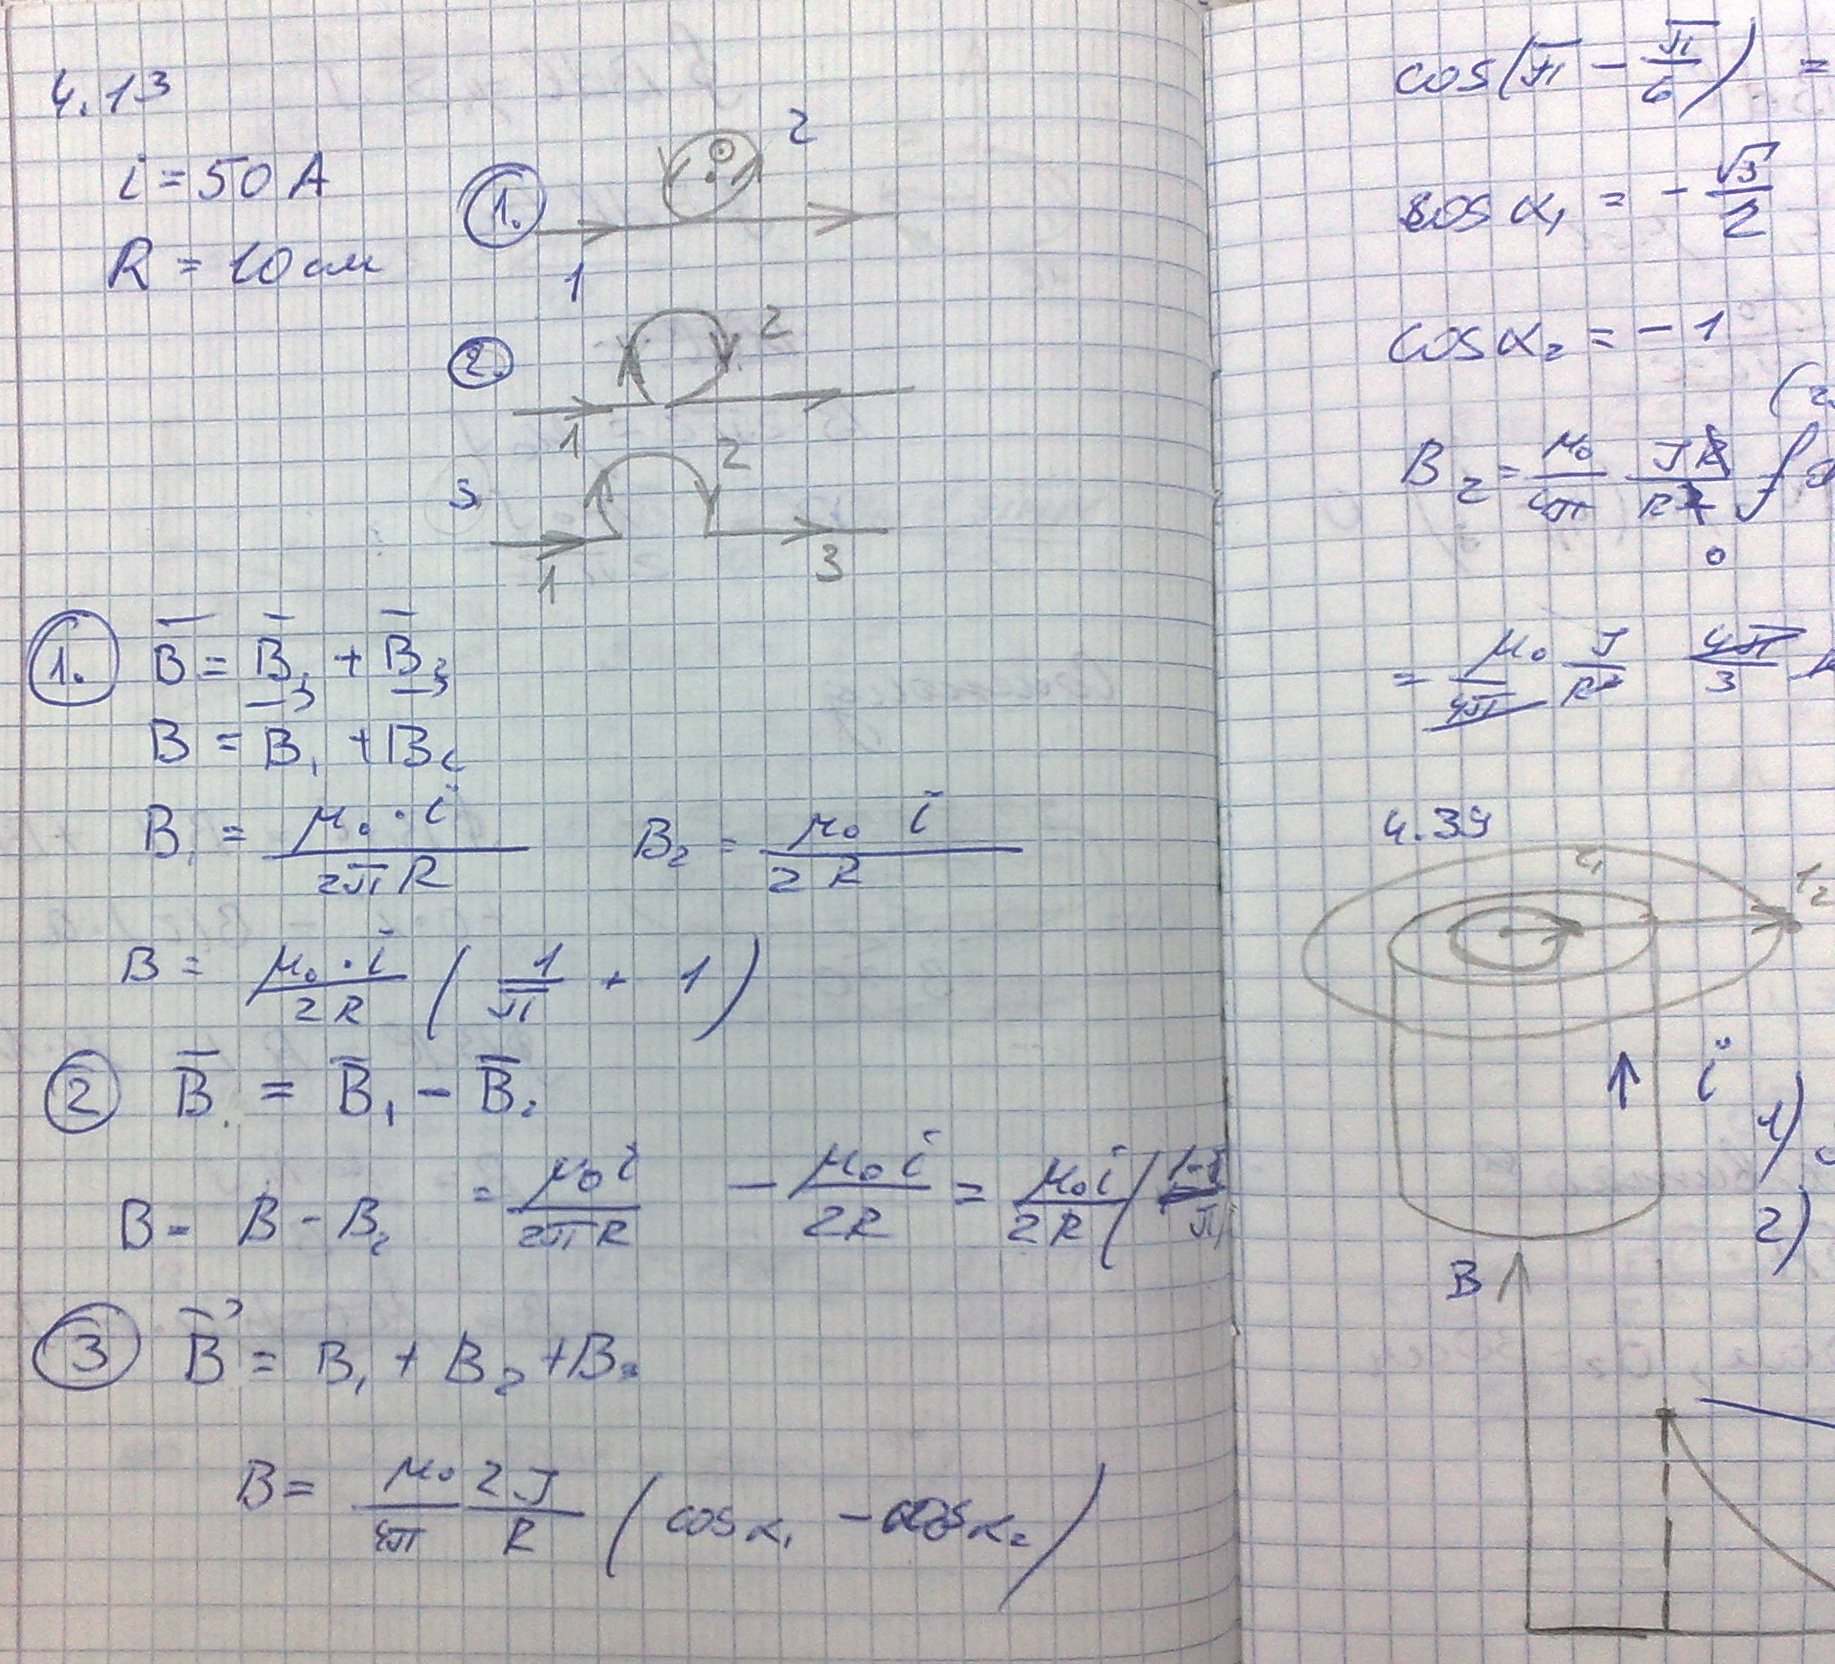 4.13
i = 50 A
R = 10 см
1. 1 2
2. 1 2
3. 1 2 3
1. B̄ = B̄₁ + B̄₂
B = B₁ + B₂
B₁ = μ₀·i / 2πR    B₂ = μ₀ i / 2R
B = μ₀·i / 2R (1/π + 1)
2 B̄ = B̄₁ − B̄₂
B = B − B₂ = μ₀i / 2πR − μ₀i / 2R = μ₀i / 2R (
3 B⃗ = B₁ + B₂ + B₃
B = μ₀/4π 2J/R (cos α₁ − cos α₂)
cos(π − π/6) =
cos α₁ = − √3/2
cos α₂ = −1
B₂ = μ₀/4π JR/R² ∫
0
= μ₀/4π J/R² 4π/3
4.39
r₁ r₂
i
1)
2)
B